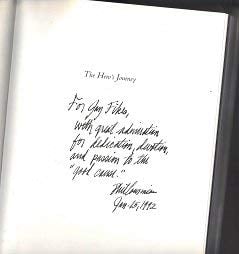 The Hero's Journey
For Jay Fikes,
with great admiration
for dedication, devotion,
and passion to the
"good cause."
Phil Cousineau
Jan. 25, 1992